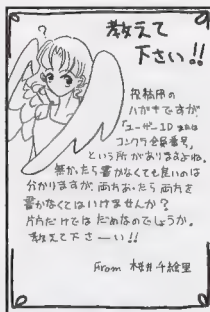 ?
教えて
下さい!!
投稿用の
ハガキですが
「ユーザーID または
コンクラ会員番号」
という所がありますよね。
無かったら書かなくても良いのは
分かりますが、両方あったら両方を
書かなくてはいけませんか?
片方だけではだめなのでしょうか。
教えて下さーい!!
From 桜井千絵里